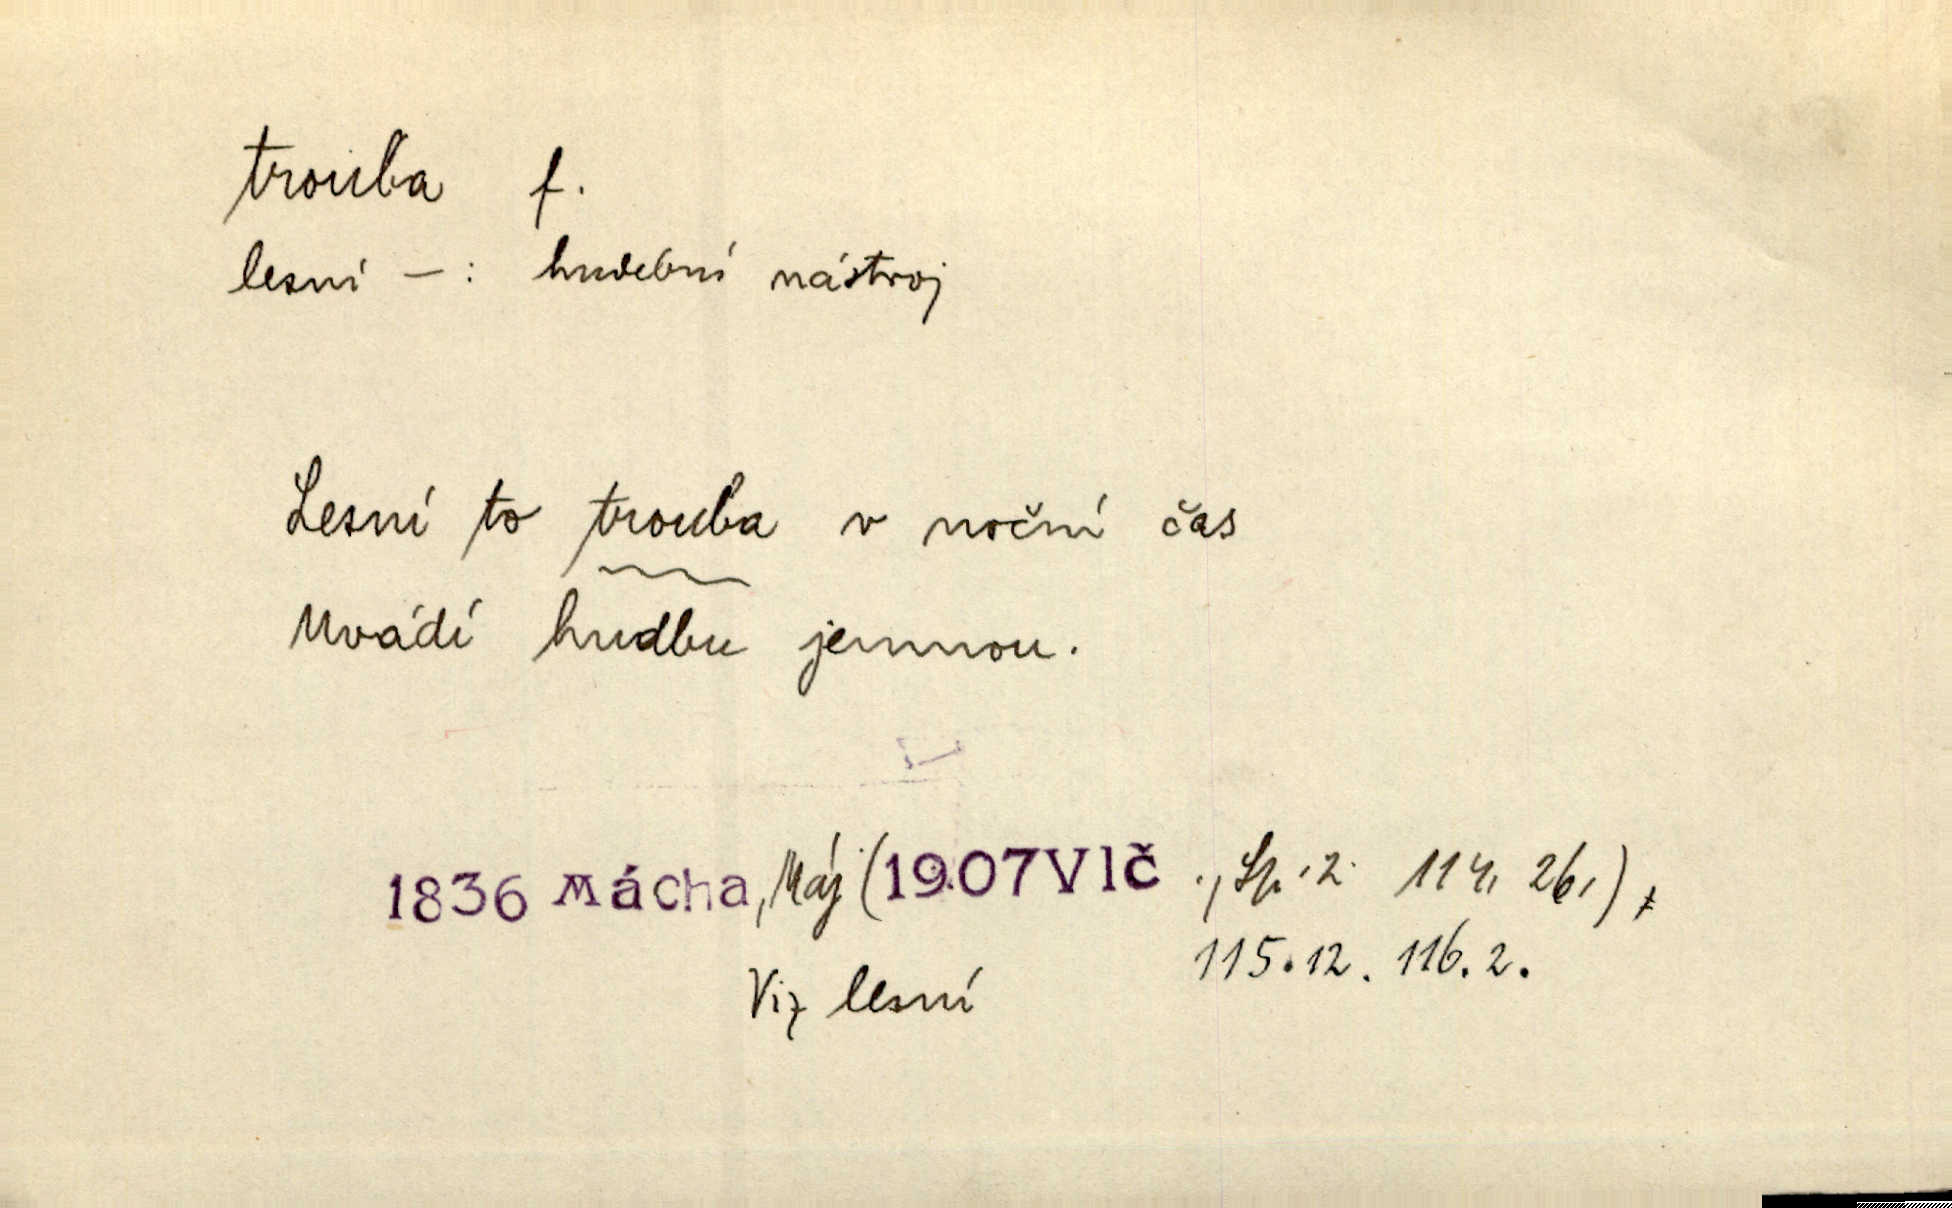 trouba f.
lesní —: hudební nástroj
Lesní to trouba v noční čas
Uvádí hudbu jemnou.
1836 Mácha, Máj (1907 Vlč., Sp. 2. 114, 26,),
115.12. 116.2.
Viz lesní